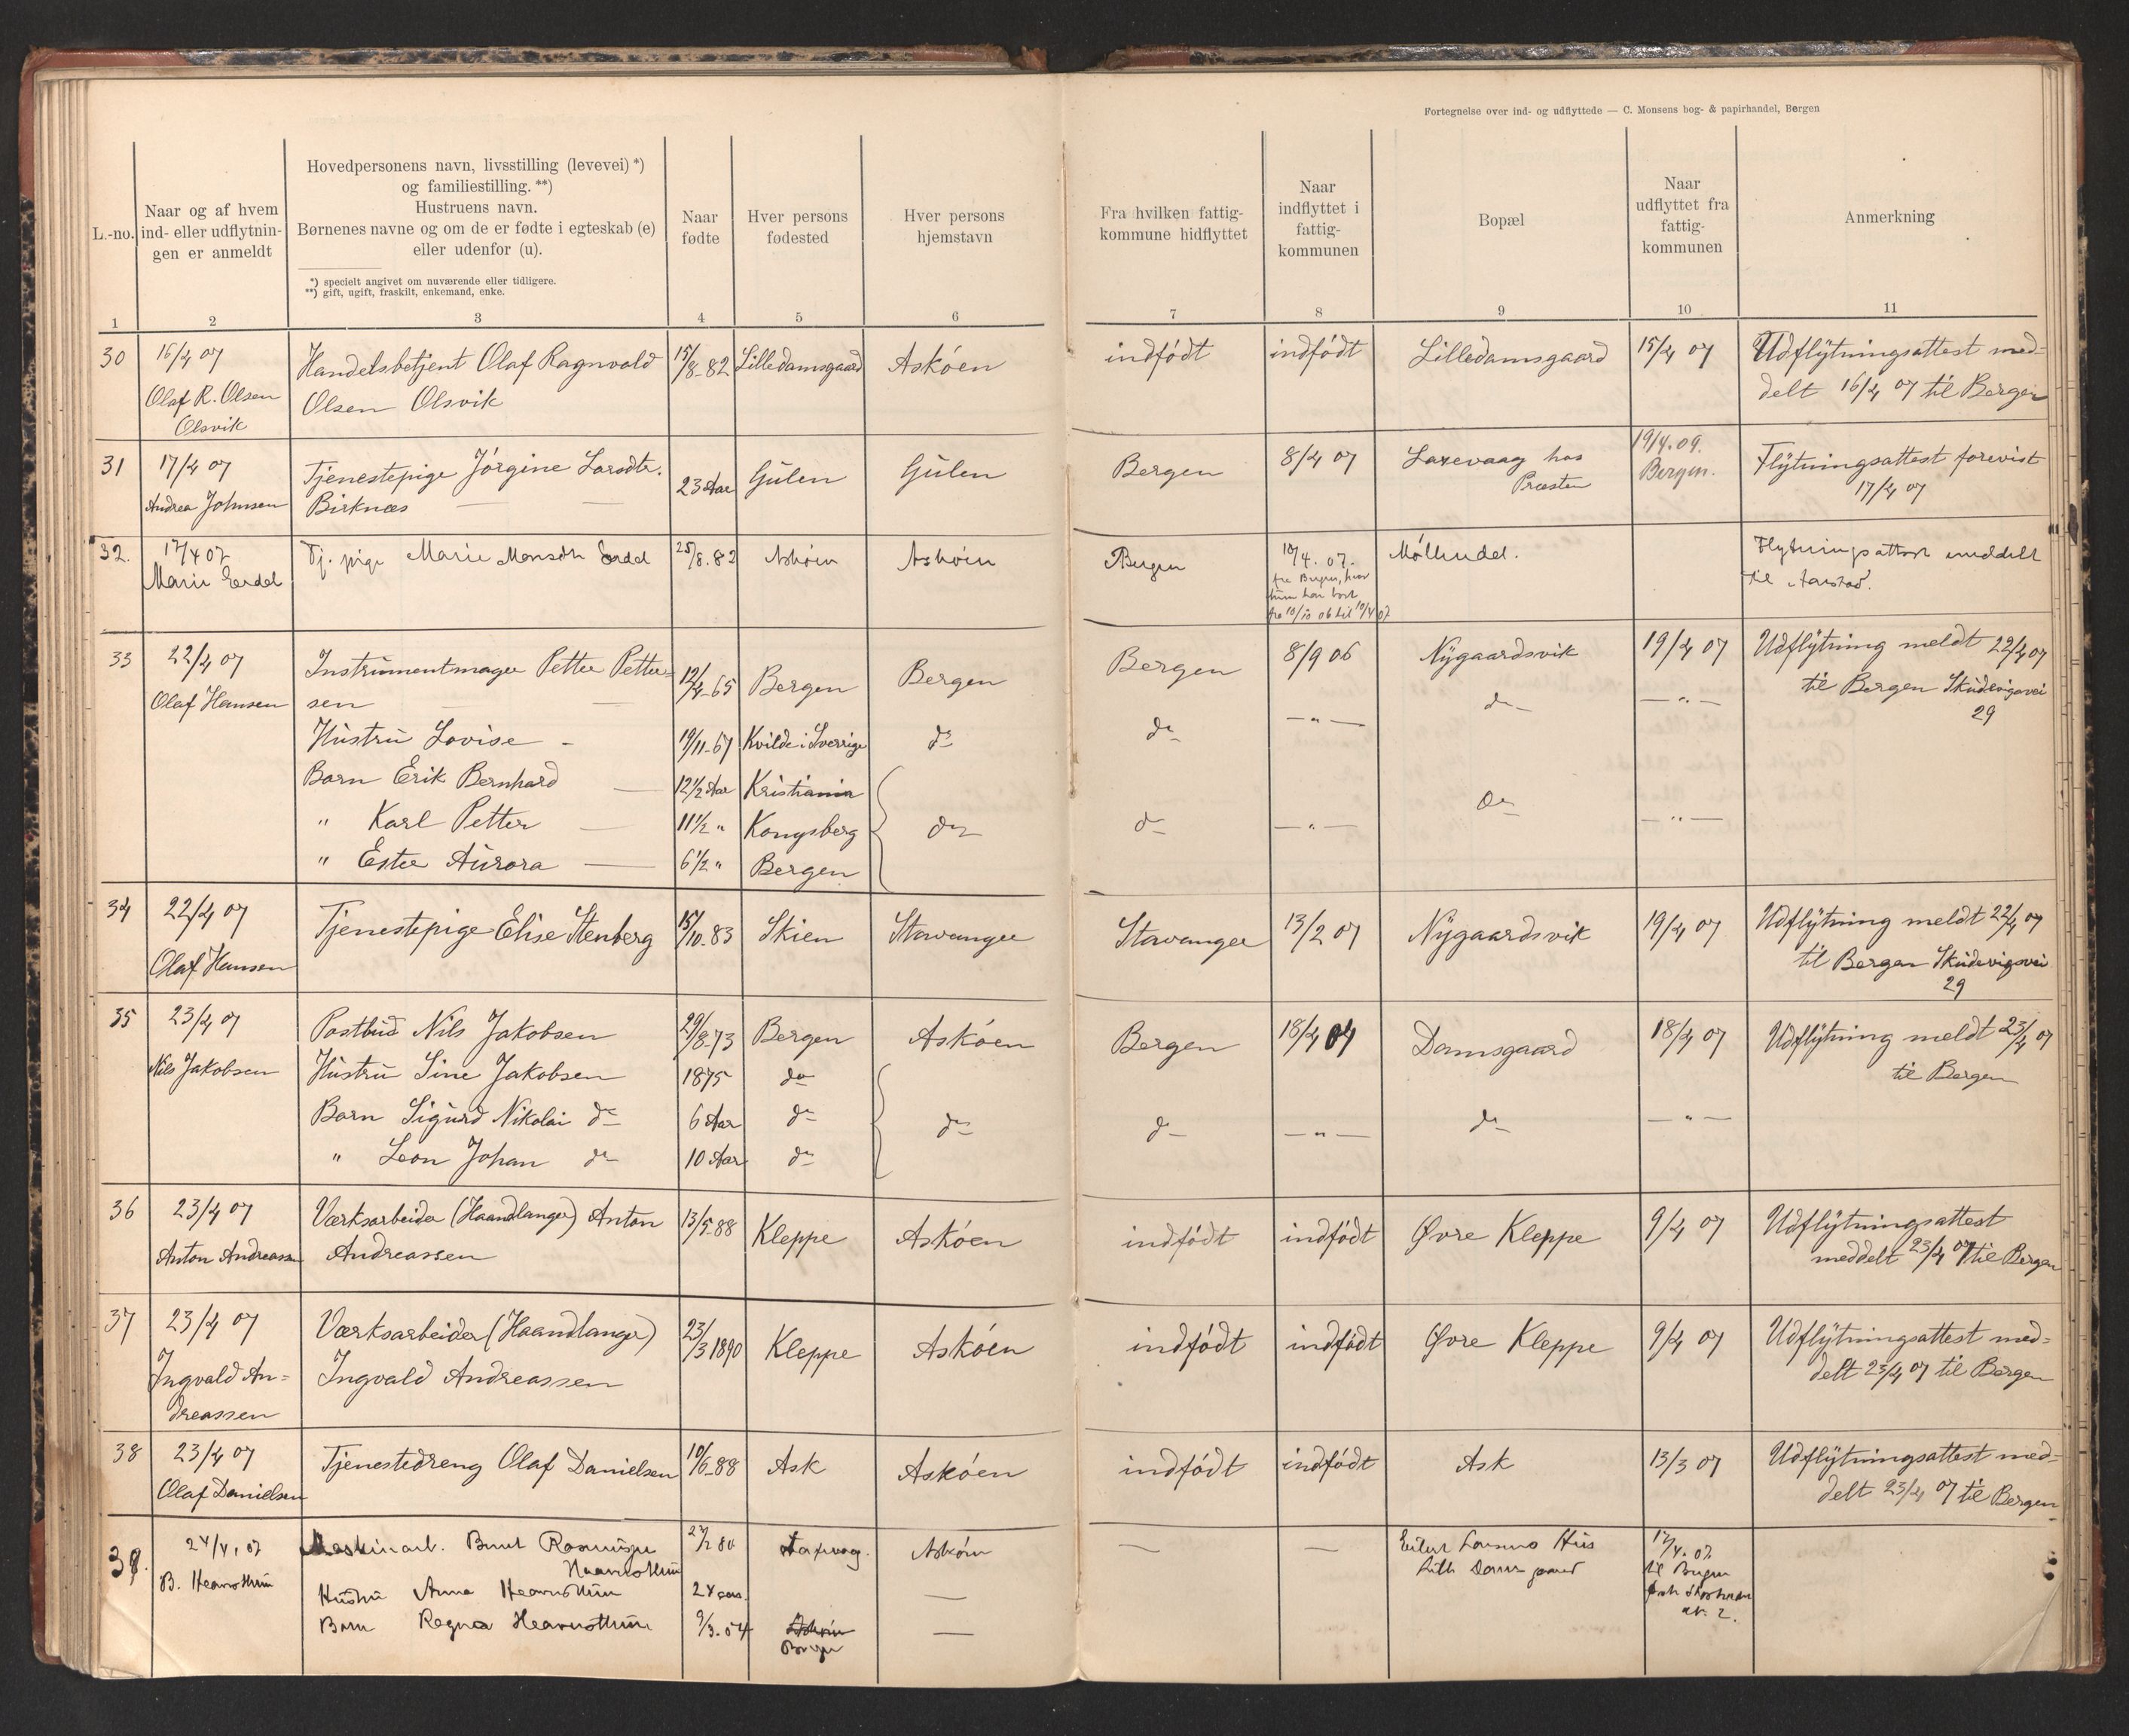 Fortegnelse over ind- og udflyttede — C. Monsens bog- & papirhandel, Bergen
L.-no.
Naar og af hvem
ind- eller udflytnin-
gen er anmeldt
Hovedpersonens navn, livsstilling (levevei) *)
og familiestilling. **)
Hustruens navn.
Børnenes navne og om de er fødte i egteskab (e)
eller udenfor (u).
*) specielt angivet om nuværende eller tidligere.
**) gift, ugift, fraskilt, enkemand, enke.
Naar
fødte
Hver persons
fødested
Hver persons
hjemstavn
Fra hvilken fattig-
kommune hidflyttet
Naar
indflyttet i
fattig-
kommunen
Bopæl
Naar
udflyttet fra
fattig-
kommunen
Anmerkning
1 2 3 4 5 6 7 8 9 10 11
30 16/4 07 Handelsbetjent Olaf Ragnvald 15/8-82 Lilledamsgaard Askóen indfódt indfódt Lilledamsgaard 15/4 07 Udflÿtningsattest med-
Olaf R. Olsen Olsen Olsvik delt 16/4 07 til Bergen
Olsvik
31 17/4 07 Tjenestepige Jórgine Larsdtr. 23 Aar Gülen Gülen Bergen 8/4 07 Laxevaag hos 19/4.09. Flÿtningsattest forevist
Andrea Johnsen Birknæs Præsten Bergen. 17/4 07
32. 17/4 07 Tj. pige Marie Monsdtr Eerdal 25/8.82 Askóen Askóen Bergen 10/4.07. Móllendal. Flytningsattest meddelt
Marie Eerdal fra Bergen, hvor til Aarstad.
hun har boet
fra 10/10 06 til 10/4 07
33 22/4 07 Instrümentmager Petter Petter- 12/4-65 Bergen Bergen Bergen 8/9 06 Nÿgaardsvik 19/4 07 Udflÿtning meldt 22/4 07
Olaf Hansen sen — — do — " — til Bergen Sküdevigsvei
29
Hüstrü Lovise - 19/11-67 Kvilde i Sverrige do do — " —
Barn Erik Bernhard — 12½ Aar Kristiania
" Karl Petter — 11½ " Kongsberg do do — " — do — " —
" Ester Aürora — 6½ " Bergen
34 22/4 07 Tjenestepige Elise Stenberg 15/10-83 Skien Stavanger Stavanger 13/2 07 Nÿgaardsvik 19/4 07 Udflÿtning meldt 22/4 07
Olaf Hansen til Bergen Sküdevigsvei
29
35 23/4 07 Postbüd Nils Jakobsen 29/8-73 Bergen Askóen Bergen 18/4 04 Damsgaard 18/4 07 Udflÿtning meldt 23/4 07
Nils Jakobsen Hüstrü Sine Jakobsen 1875 do til Bergen
Barn Sigürd Nikolai do 6 Aar do do do — " — do — " —
" Leon Johan do 10 Aar do
36 23/4 07 Værksarbeider (Haandlanger) Anton 13/5-88 Kleppe Askóen indfódt indfódt Øvre Kleppe 9/4 07 Udflÿtningsattest
Anton Andreassen Andreassen meddelt 23/4 07 til Bergen
37 23/4 07 Værksarbeider (Haandlanger) 23/3 1890 Kleppe Askóen indfódt indfódt Øvre Kleppe 9/4 07 Udflÿtningsattest med-
Ingvald An- Ingvald Andreassen delt 23/4 07 til Bergen
dreassen
38 23/4 07 Tjenestedreng Olaf Danielsen 10/6-88 Ask Askóen indfódt indfódt Ask 13/3 07 Udflÿtningsattest med-
Olaf Danielsen delt 23/4 07 til Bergen
39. 24/4.07 Maskinarb. 80 Laxevaag. Askóen — — Hus 17/4.07.
B. Lille Damsgaard til Bergen
Hustru Anna 24 aar. — nr. 2.
Barn Ragna 9/3.04 Askóen —
Bergen